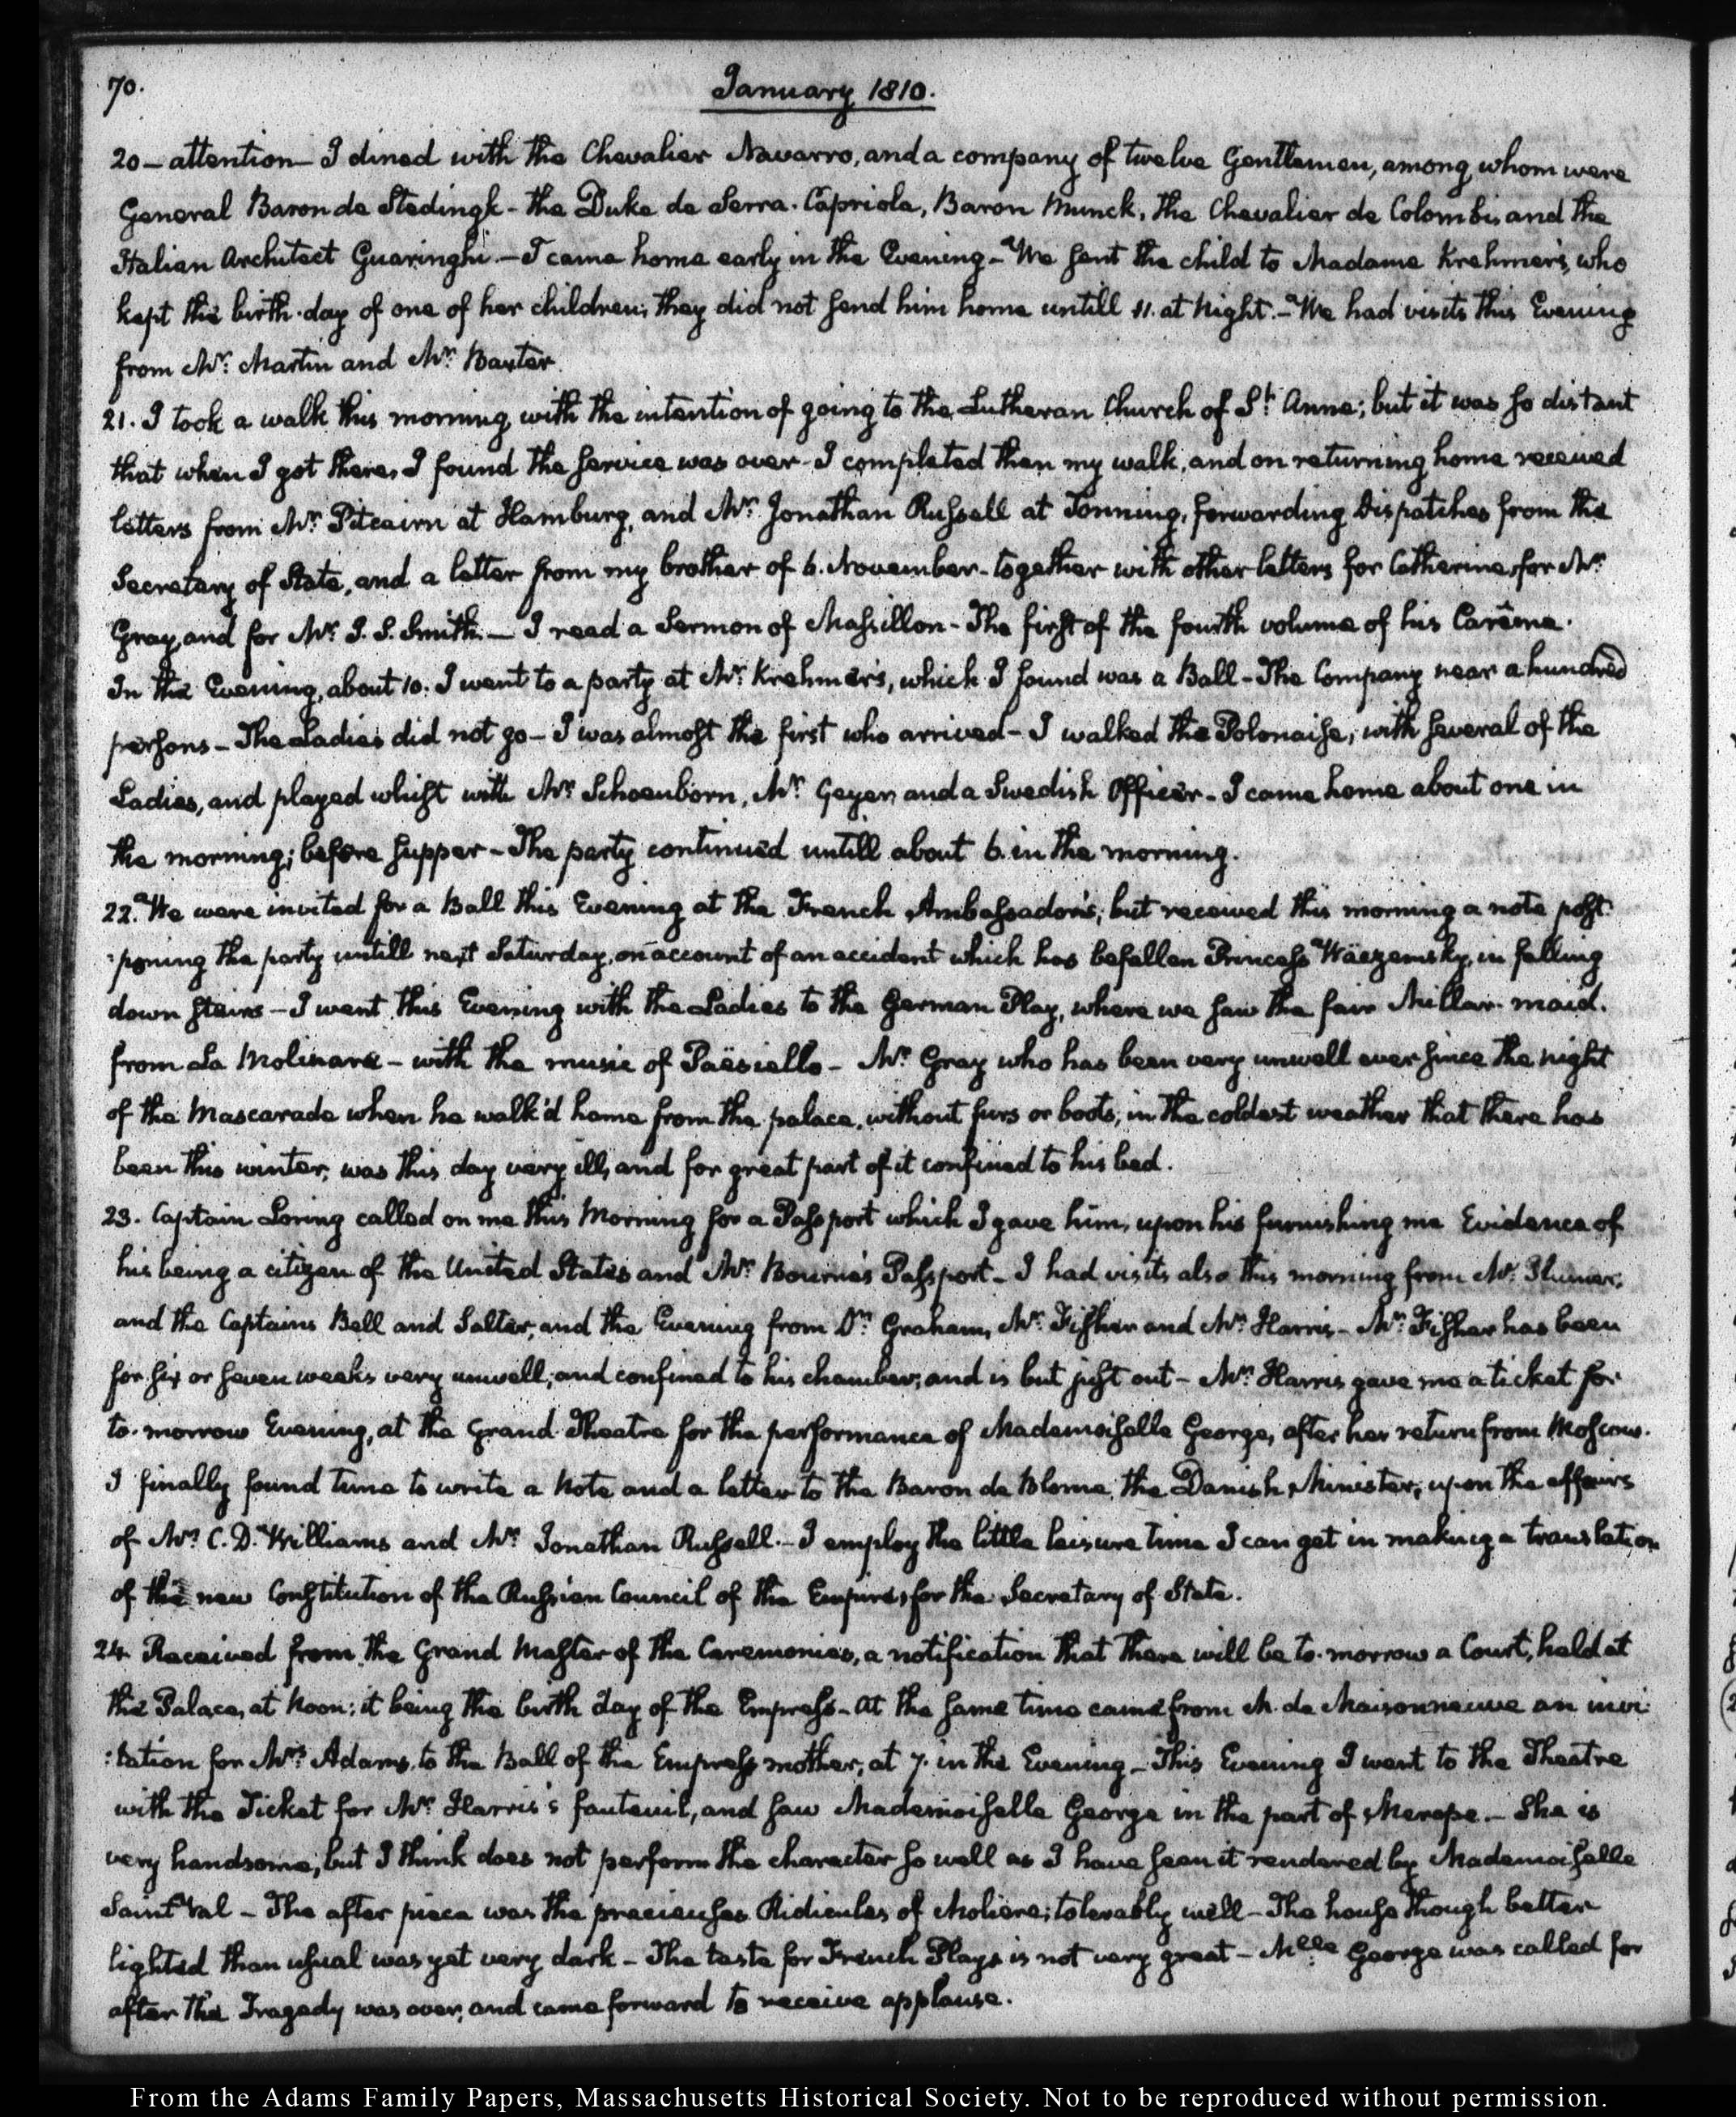 70.
January 1810.
20 - attention - I dined with the Chevalier Navarro, and a company of twelve Gentlemen, among whom were
General Baron de Stedingk - the Duke de Serra. Capriola, Baron Munck, the Chevalier de Colombi, and the
Italian Architect Guaringhi. - I came home early in the Evening - We sent the child to Madame Krehmer's, who
kept the birth-day of one of her children; they did not send him home untill 11. at Night. - We had visits this Evening
from Mr. Martin and Mr. Baxter.
21. I took a walk this morning, with the intention of going to the Lutheran Church of St. Anne; but it was so distant
that when I got there, I found the service was over - I completed then my walk, and on returning home received
letters from Mr. Pitcairn at Hamburg, and Mr. Jonathan Russell at Tonning, forwarding Dispatches from the
Secretary of State, and a letter from my brother of 6. November - together with other letters for Catherine, for Mr.
Gray, and for Mr. J. S. Smith. - I read a Sermon of Massillon - The first of the fourth volume of his Carême.
In the Evening, about 10. I went to a party at Mr. Krehmer's, which I found was a Ball - The Company near a hundred
persons - The Ladies did not go - I was almost the first who arrived - I walked the Polonaise, with several of the
Ladies, and played whist with Mr. Schoenborn, Mr. Geyer and a Swedish Officer - I came home about one in
the morning; before supper - The party continued untill about 6. in the morning.
22. We were invited for a Ball this Evening at the French Ambassador's; but received this morning a note post-
:poning the party untill next Saturday, on account of an accident which has befallen Princess Wäezemsky, in falling
down stairs - I went this Evening with the Ladies to the German Play, where we saw the fair Millar-maid.
from La Molinara - with the music of Paësiello - Mr. Gray who has been very unwell ever since the night
of the Mascarade when he walk'd home from the palace, without furs or boots, in the coldest weather that there has
been this winter, was this day very ill, and for great part of it confined to his bed.
23. Captain Loring called on me this Morning for a Passport which I gave him, upon his furnishing me Evidence of
his being a citizen of the United States and Mr. Bourne's Passport - I had visits also this morning from Mr. Plumer,
and the Captains Bell and Salter, and the Evening from Dr. Graham, Mr. Fisher and Mr. Harris - Mr. Fisher has been
for six or seven weeks very unwell; and confined to his chamber; and is but just out - Mr. Harris gave me a ticket for
to-morrow Evening, at the Grand Theatre for the performance of Mademoiselle George, after her return from Moscow.
I finally found time to write a Note and a letter to the Baron de Blome, the Danish Minister, upon the affairs
of Mr. C. D. Williams and Mr. Jonathan Russell. - I employ the little leisure time I can get in making a translation
of the new Constitution of the Russian Council of the Empire, for the Secretary of State.
24. Received from the Grand Master of the Ceremonies, a notification that there will be to-morrow a Court, held at
the Palace, at Noon; it being the birth day of the Empress - At the same time came from M. de Maisonneuve an invi-
:tation for Mrs. Adams, to the Ball of the Empress mother, at 7. in the Evening - This Evening I went to the Theatre
with the Ticket for Mr. Harris's fauteuil, and saw Mademoiselle George in the part of Merope. - She is
very handsome; but I think does not perform the character so well as I have seen it rendered by Mademoiselle
Saint Val - The after piece was the precieuses Ridicules of Moliere; tolerably well - The house though better
lighted than usual was yet very dark - The taste for French Plays is not very great - Mlle George was called for
after the Tragedy was over, and came forward to receive applause.
From the Adams Family Papers, Massachusetts Historical Society. Not to be reproduced without permission.